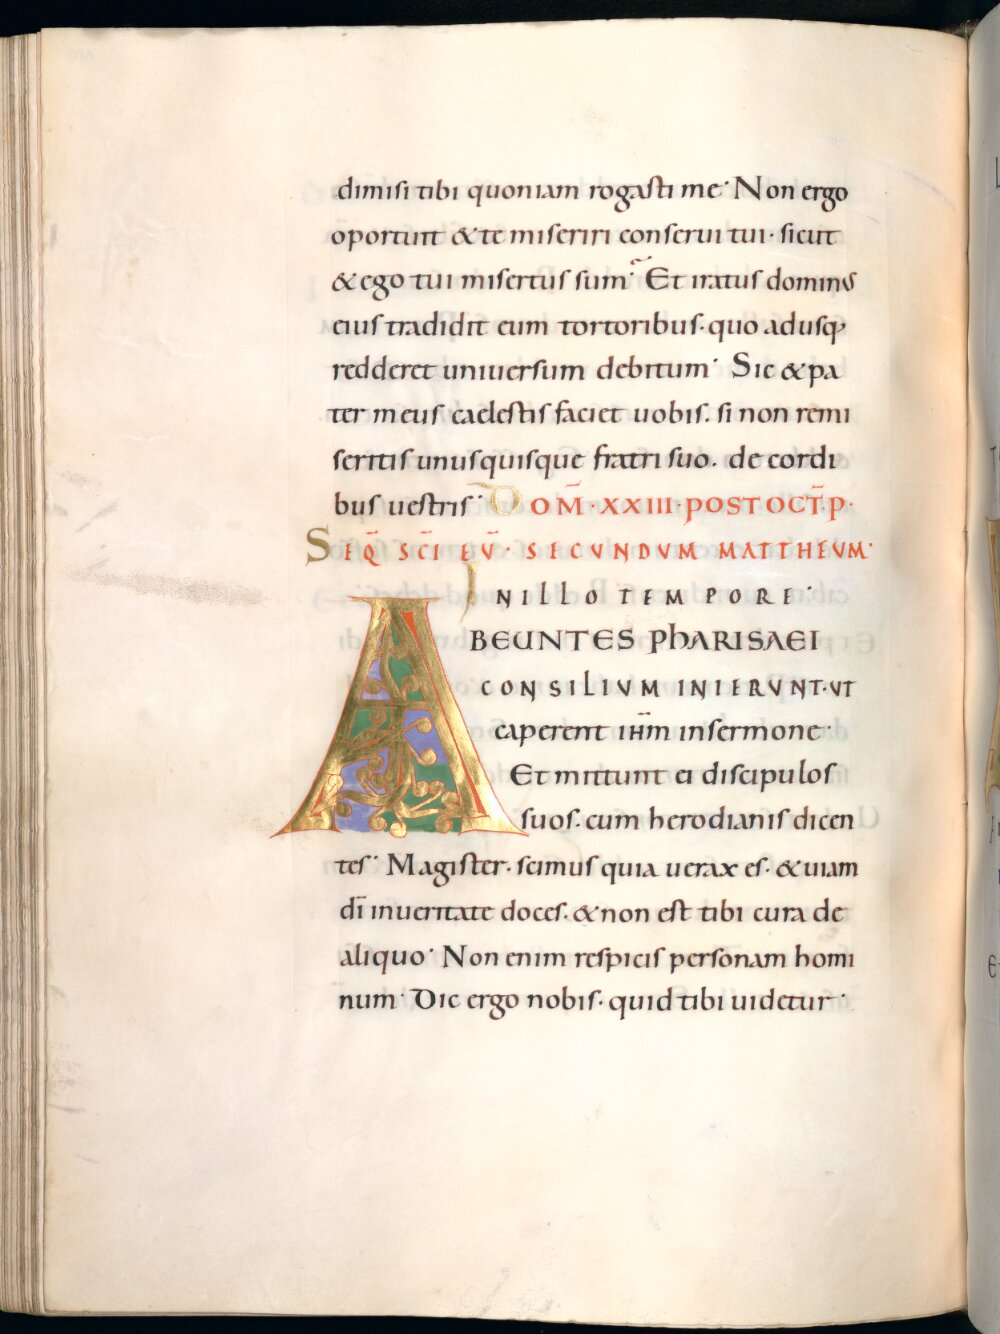 dimisi tibi quoniam rogasti me· Non ergo
oportuit & te miseriri conserui tui· sicut
& ego tui misertus sum· Et iratus dominus
eius tradidit eum tortoribus· quo adusq;
redderet uniuersum debitum· Sic & pa
ter meus caelestis faciet uobis· si non remi
seritis unusquisque fratri suo· de cordi
bus uestris· DOM̄·XXIII·POST OCT̄·P·
SEQ̄ SC̄I EŪ· SECUNDUM MATTHEUM·
IN ILLO TEMPORE·
ABEUNTES PhARISAEI
CONSILIUM INIERUNT·UT
caperent ihm̄ in sermone·
Et mittunt ei discipulos
suos· cum herodianis dicen
tes· Magister· scimus quia uerax es· & uiam
dī in ueritate doces· & non est tibi cura de
aliquo· Non enim respicis personam homi
num· Dic ergo nobis· quid tibi uidetur·